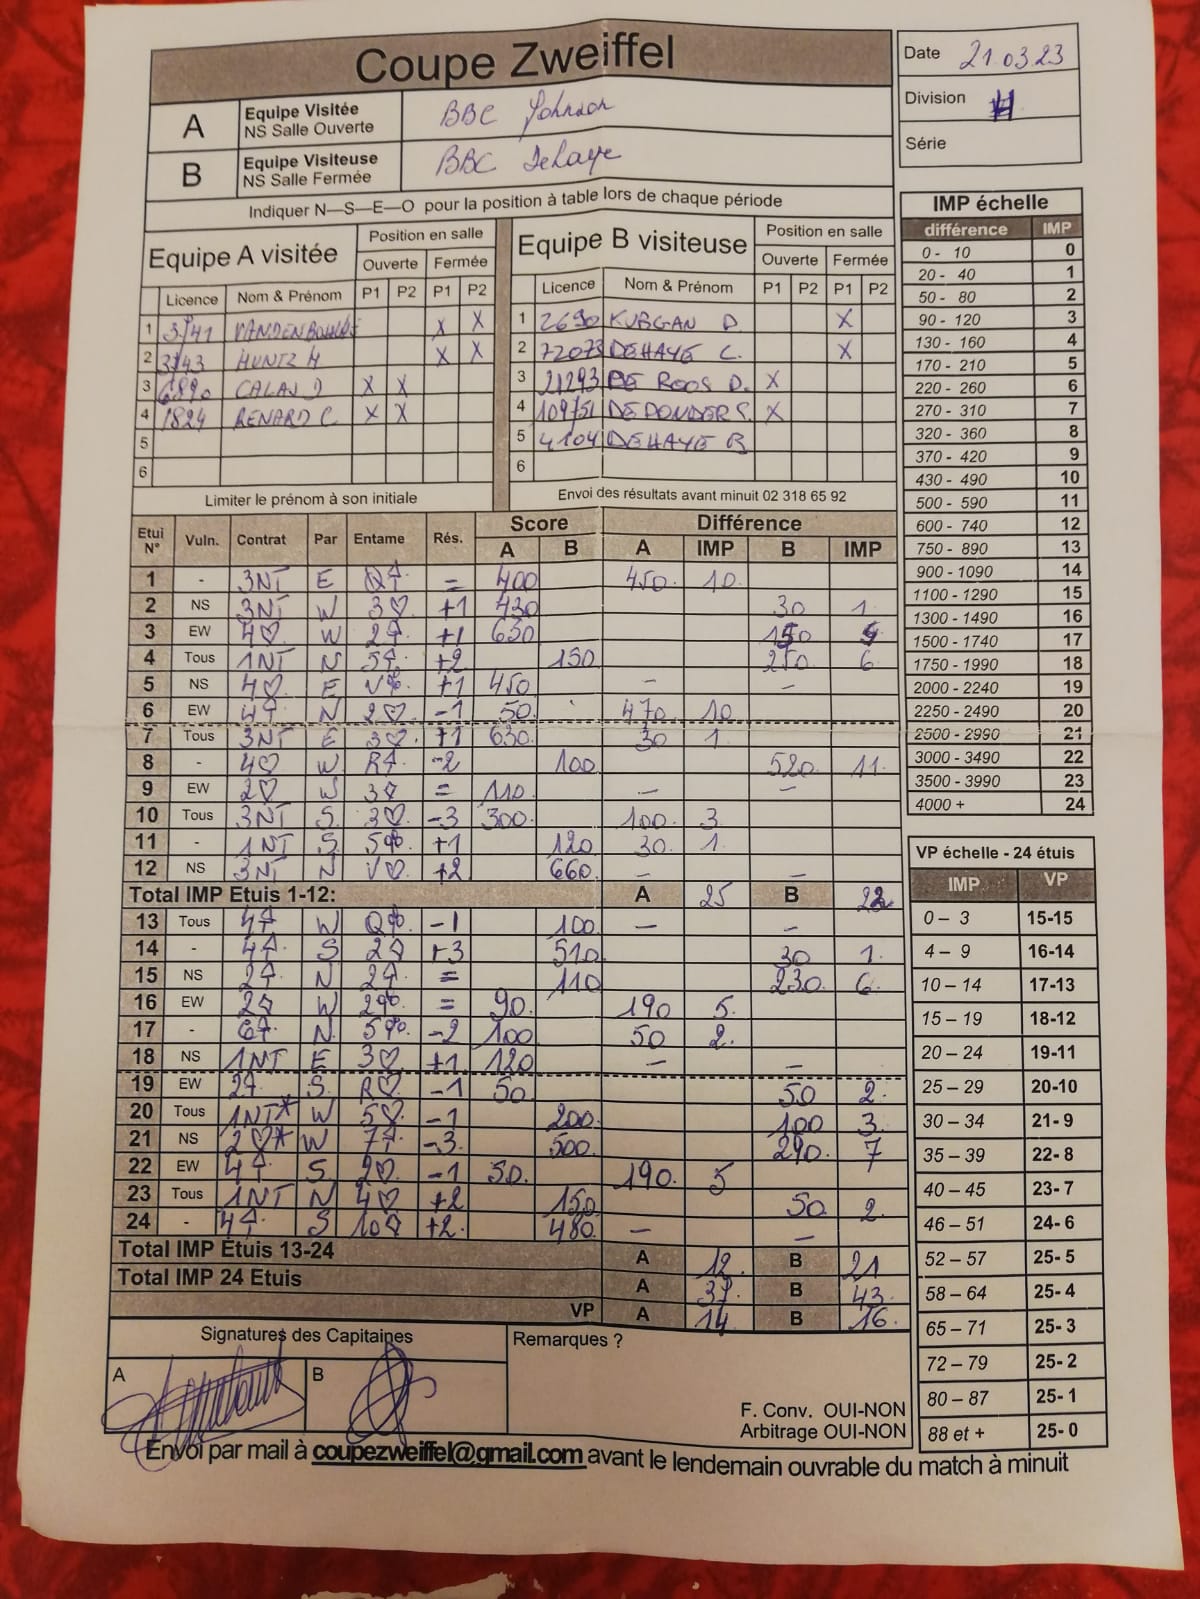 Coupe Zweiffel
Date 21.03.23
Division H
Série
A Equipe Visitée NS Salle Ouverte BBC Johnson
B Equipe Visiteuse NS Salle Fermée BBC Dehaye
Indiquer N—S—E—O pour la position à table lors de chaque période
Equipe A visitée
Position en salle
Ouverte Fermée
Licence Nom & Prénom P1 P2 P1 P2
1 3741 X X
2 3143 HUNTZ H X X
3 6890 CALAS D X X
4 1824 RENARD C. X X
5
6
Limiter le prénom à son initiale
Equipe B visiteuse
Position en salle
Ouverte Fermée
Licence Nom & Prénom P1 P2 P1 P2
1 2690 KURGAN D. X
2 72073 DEHAYE C. X
3 21293 DE ROOS D. X
4 109751 DEPONDER S. X
5 4104 DEHAYE B
6
Envoi des résultats avant minuit 02 318 65 92
Etui N° Vuln. Contrat Par Entame Rés. Score A B Différence A IMP B IMP
1 - 3NT E Q♠ = 400 450 10
2 NS 3NT W 3♡ +1 430 30 1
3 EW 4♡ W 2♠ +1 650 150
4 Tous 1NT N 5♠ +2 150 250 6
5 NS 4♡ E V♣ +1 450 - -
6 EW 4♠ N 2♡ -1 50 470 10
7 Tous 3NT E 3♡ +1 630 30 1
8 - 4♡ W R♠ -2 100 520 11
9 EW 2♡ W 3♦ = 110 - -
10 Tous 3NT S 3♡ -3 300 100 3
11 - 1NT S 5♣ +1 120 30 1
12 NS 3NT N V♡ +2 660 - -
Total IMP Etuis 1-12: A 25 B 22
13 Tous 4♠ W Q♣ -1 100 - -
14 - 4♠ S 2♦ +3 510 30 1
15 NS 2♠ N 2♦ = 110 230 6
16 EW 2♦ W 2♣ = 90 190 5
17 - 6♠ N 5♣ -2 100 50 2
18 NS 1NT E 3♡ +1 120 - -
19 EW 2♠ S R♡ -1 50 50 2
20 Tous 1NT* W 5♡ -1 200 100 3
21 NS 2♡* W 7♠ -3 500 290 7
22 EW 4♠ S 9♡ -1 50 190 5
23 Tous 1NT N 4♡ +2 150 50 2
24 - 4♠ S 10♦ +2 480 - -
Total IMP Etuis 13-24 A 12 B 21
Total IMP 24 Etuis A 37 B 43
VP A 14 B 16
Signatures des Capitaines
A B
Remarques ?
F. Conv. OUI-NON
Arbitrage OUI-NON
Envoi par mail à coupezweiffel@gmail.com avant le lendemain ouvrable du match à minuit
IMP échelle
différence IMP
0 - 10 0
20 - 40 1
50 - 80 2
90 - 120 3
130 - 160 4
170 - 210 5
220 - 260 6
270 - 310 7
320 - 360 8
370 - 420 9
430 - 490 10
500 - 590 11
600 - 740 12
750 - 890 13
900 - 1090 14
1100 - 1290 15
1300 - 1490 16
1500 - 1740 17
1750 - 1990 18
2000 - 2240 19
2250 - 2490 20
2500 - 2990 21
3000 - 3490 22
3500 - 3990 23
4000 + 24
VP échelle - 24 étuis
IMP VP
0 – 3 15-15
4 – 9 16-14
10 – 14 17-13
15 – 19 18-12
20 – 24 19-11
25 – 29 20-10
30 – 34 21-9
35 – 39 22-8
40 – 45 23-7
46 – 51 24-6
52 – 57 25-5
58 – 64 25-4
65 – 71 25-3
72 – 79 25-2
80 – 87 25-1
88 et + 25-0